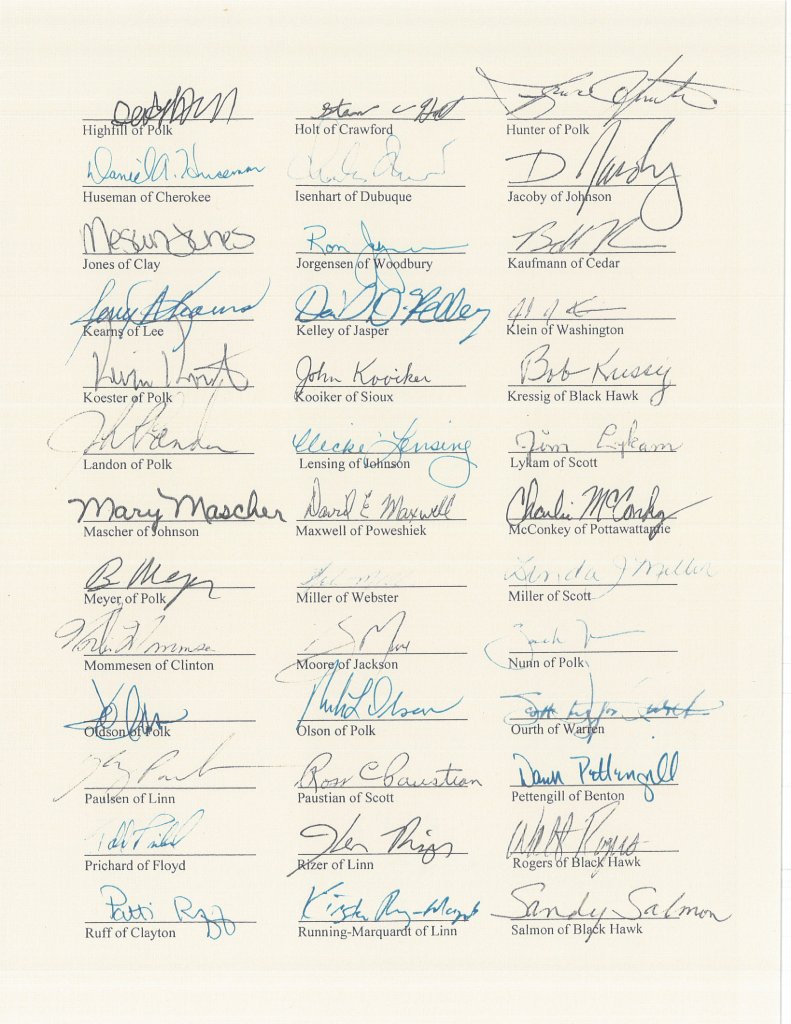 Highfill of Polk Holt of Crawford Hunter of Polk
Daniel A. Huseman
Huseman of Cherokee Isenhart of Dubuque Jacoby of Johnson
Megan Jones Ron Jorgensen
Jones of Clay Jorgensen of Woodbury Kaufmann of Cedar
Jerry A Kearns David D. Kelley
Kearns of Lee Kelley of Jasper Klein of Washington
Kevin Koester John Kooiker Bob Kressig
Koester of Polk Kooiker of Sioux Kressig of Black Hawk
Vicki Lensing Jim Lykam
Landon of Polk Lensing of Johnson Lykam of Scott
Mary Mascher David E Maxwell Charlie McConkey
Mascher of Johnson Maxwell of Poweshiek McConkey of Pottawattamie
B Meyer Linda J Miller
Meyer of Polk Miller of Webster Miller of Scott
Mommesen of Clinton Moore of Jackson Nunn of Polk
Rick L Olson
Oldson of Polk Olson of Polk Ourth of Warren
Ross C Paustian Dawn Pettengill
Paulsen of Linn Paustian of Scott Pettengill of Benton
Ken Rizer Walt Rogers
Prichard of Floyd Rizer of Linn Rogers of Black Hawk
Patti Ruff Sandy Salmon
Ruff of Clayton Running-Marquardt of Linn Salmon of Black Hawk